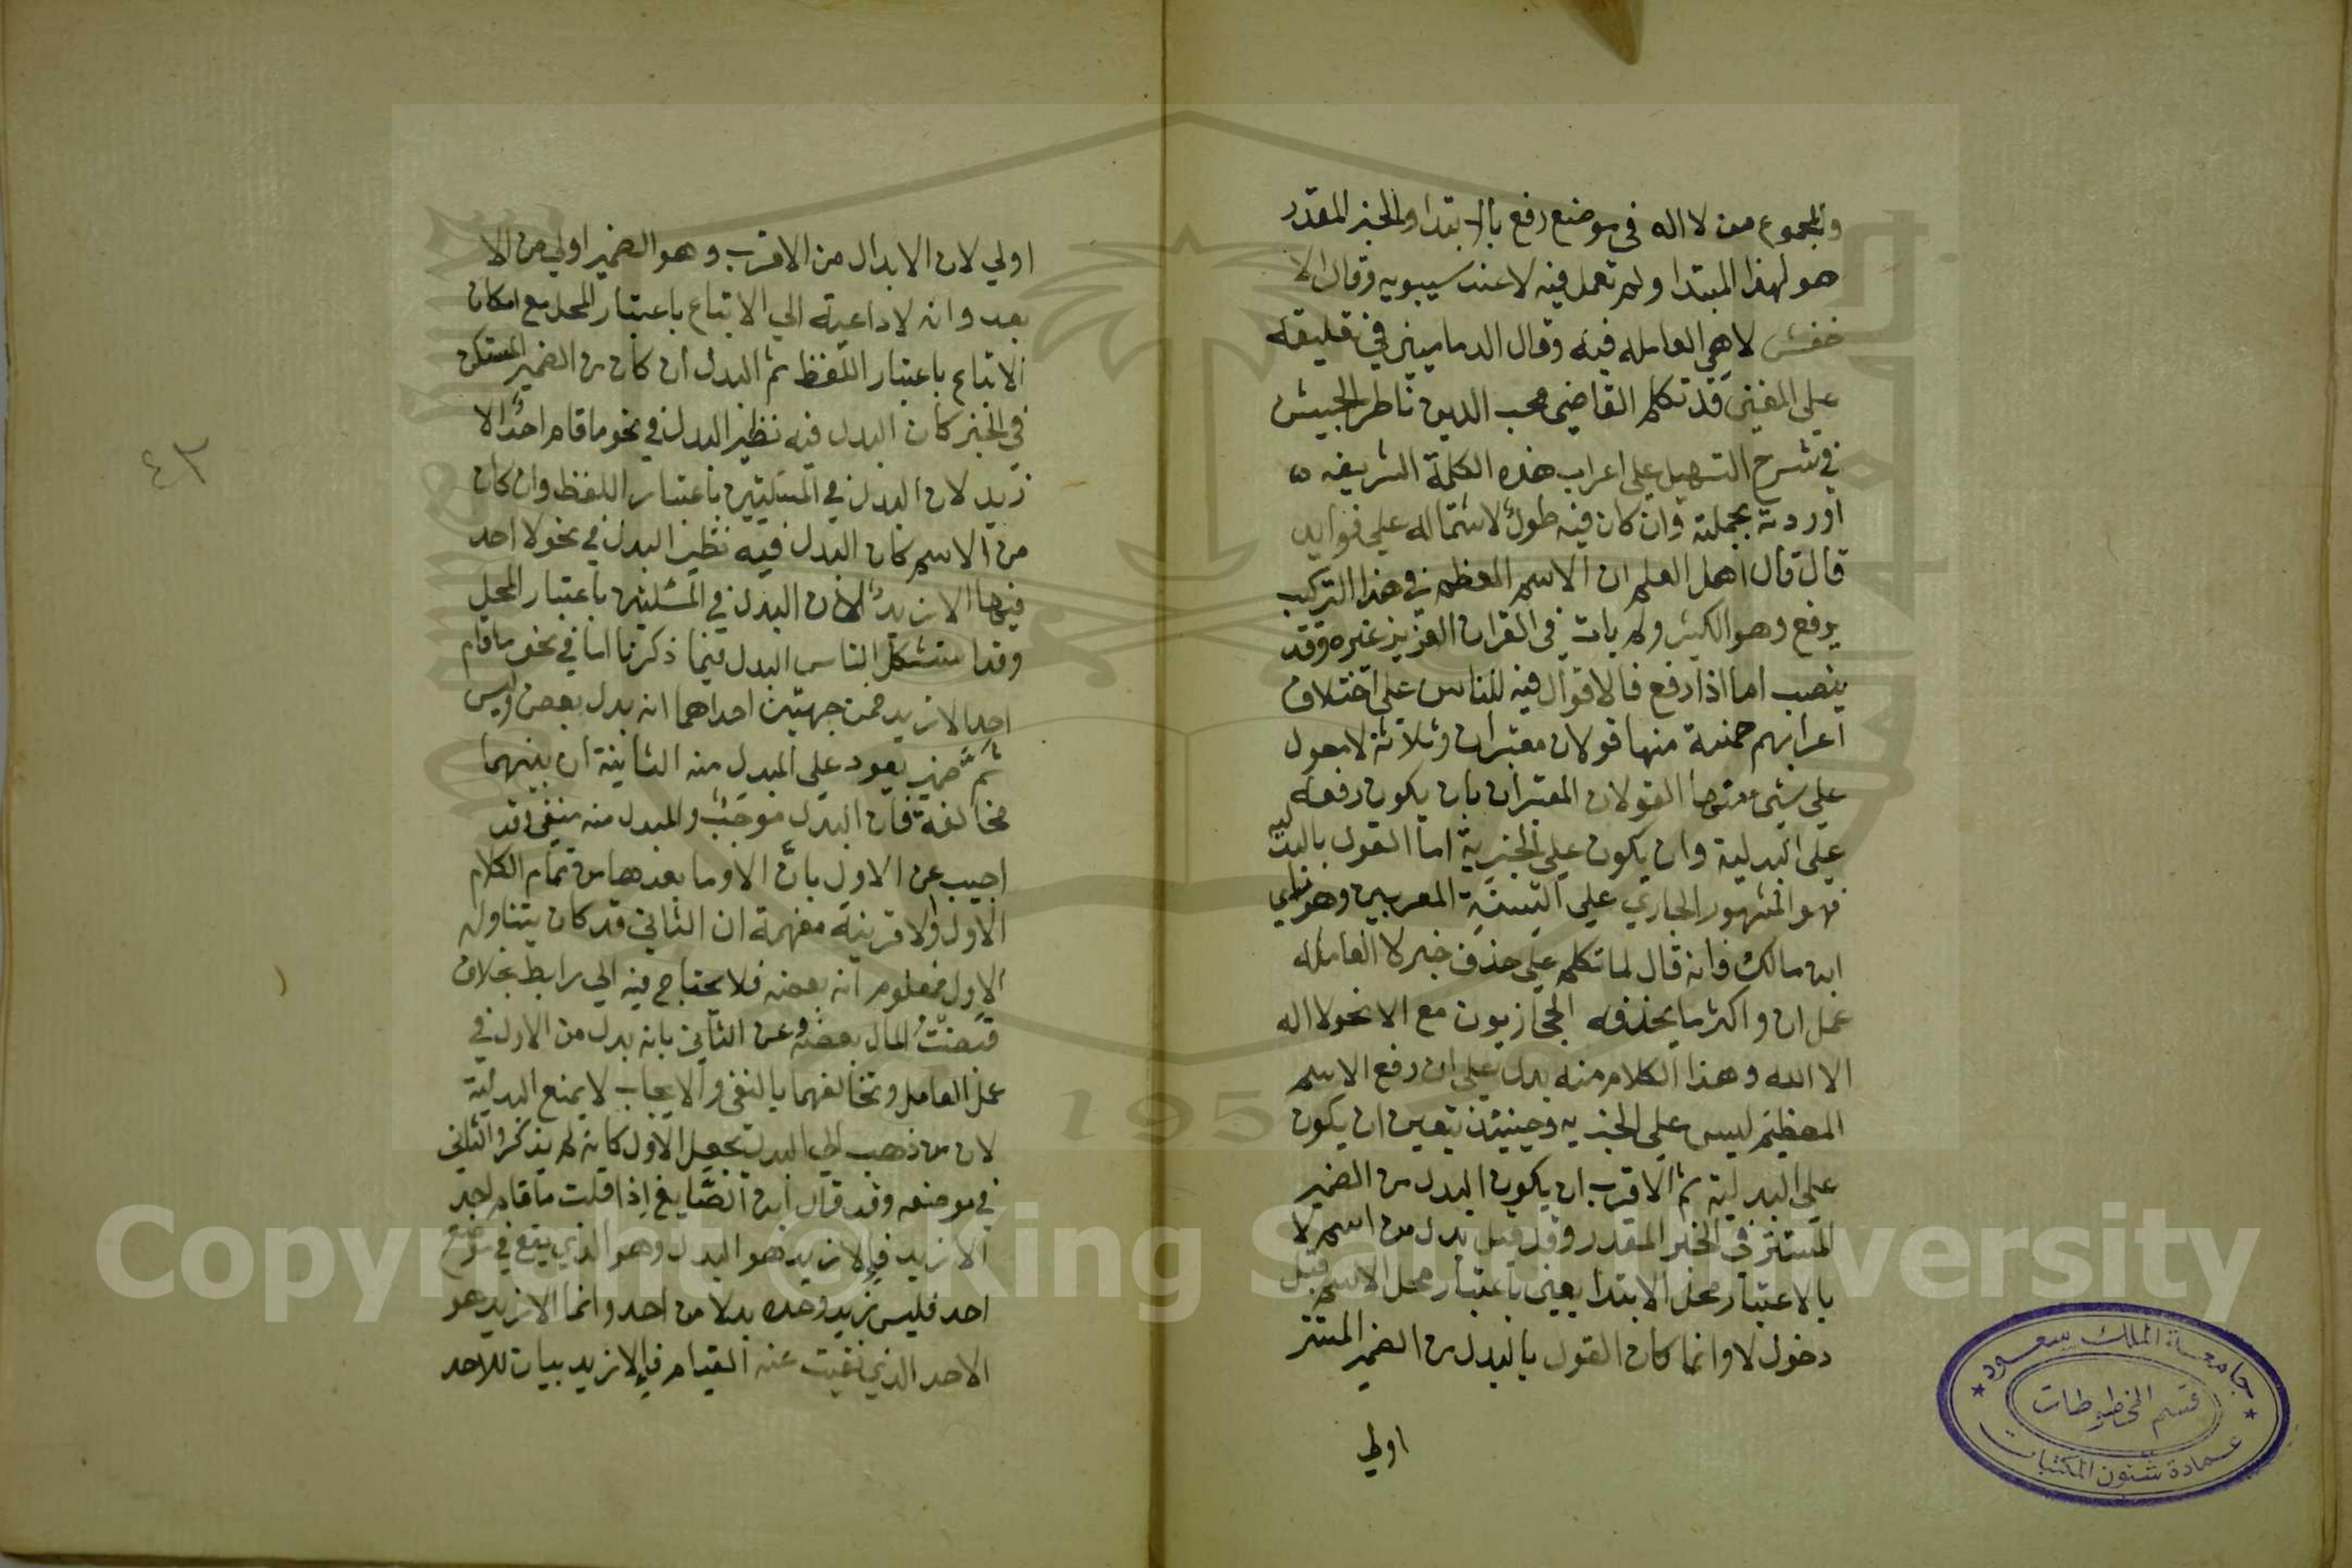 والمجموع من لا اله في موضع رفع بالابتدا والخبر المقدر
هو لهذا المبتدا ولم تعمل فيه لا عند سيبويه وقال الا
خفش لا هي العامله فيه وقال الدماميني في تعليقه
علي المغني قد تكلم القاضي محب الدين ناظر الجيش
في شرح التسهيل علي اعراب هذه الكلمة الشريفه
اوردته بجملته وان كان فيه طول لاشتماله علي فوايد
قال قال اهل العلم ان الاسم المعظم في هذا التركيب
يرفع وهو الكثير ولم يات في القران العزيز غيره وقد
ينصب اما اذا رفع فالاقوال فيه للناس علي اختلاف
اعرابهم خمسة منها قولان معتبران وثلاثة لا معول
علي شيئ منها القولان المعتبران بان يكون رفعه
علي البدلية وان يكون علي الخبرية اما القول بالبدليه
فهو المشهور الجاري علي السنة المعربين وهو راي
ابن مالك فانه قال لما تكلم علي حذف خبر لا العاملة
عمل ان واكثر ما يحذفه الحجازيون مع الا نحو لا اله
الا الله وهذا الكلام منه يدل علي ان رفع الاسم
المعظيم ليس علي الخبريه وحينئذ يتعين ان يكون
علي البدلية ثم الاقرب ان يكون البدل من الضمير
المستتر في الخبر المقدر وقد قيل بدل من اسم لا
بالاعتبار محل الابتدا يعني باعتبار محل الاسم قبل
دخول لا وانما كان القول بالبدل من الضمير المستتر
اولي
اولي لان الابدال من الاقرب وهو الضمير اولي من الا
بعد وانه لا داعية الي الاتباع باعتبار المحل مع امكان
الاتباع باعتبار اللفظ ثم البدل ان كان من الضمير المستكن
في الخبر كان البدل فيه نظير البدل في نحو ما قام احد الا
زيد لان البدل في المسئلتين باعتبار اللفظ وان كان
من الاسم كان البدل فيه نظير البدل في نحو لا احد
فيها الا زيد لان البدل في المسئلتين باعتبار المحل
وقد استشكل الناس البدل فيما ذكرنا اما في نحو ما قام
احد الا زيد فمن جهتين احداهما انه بدل بعض وليس
ثم ضمير يعود علي المبدل منه الثانية ان بينهما
مخالفة فان البدل موجب والمبدل منه منفي وقد
اجيب عن الاول بان الا وما بعدها من تمام الكلام
الاول والا قرينة مفهمة ان الثاني قد كان يتناوله
الاول فمعلوم انه بعضه فلا يحتاج فيه الي رابط بخلاف
قبضت المال بعضه وعن الثاني بانه بدل من الاول في
عمل العامل وتخالفهما بالنفي والايجاب لا يمنع البدلية
لان من ذهب الي البدل يجعل الاول كانه لم يذكر والثاني
في موضعه وقد قال ابن الصايغ اذا قلت ما قام احد
الا زيد فالا زيد هو البدل وهو الذي يقع في موضع
احد فليس زيد وحده بدلا من احد وانما الا زيد هو
الاحد الذي نفيت عنه القيام فالا زيد بيان للاحد
٤٣
جامعة الملك سعود
قسم المخطوطات
عمادة شئون المكتبات
Copyright © King Saud University
195